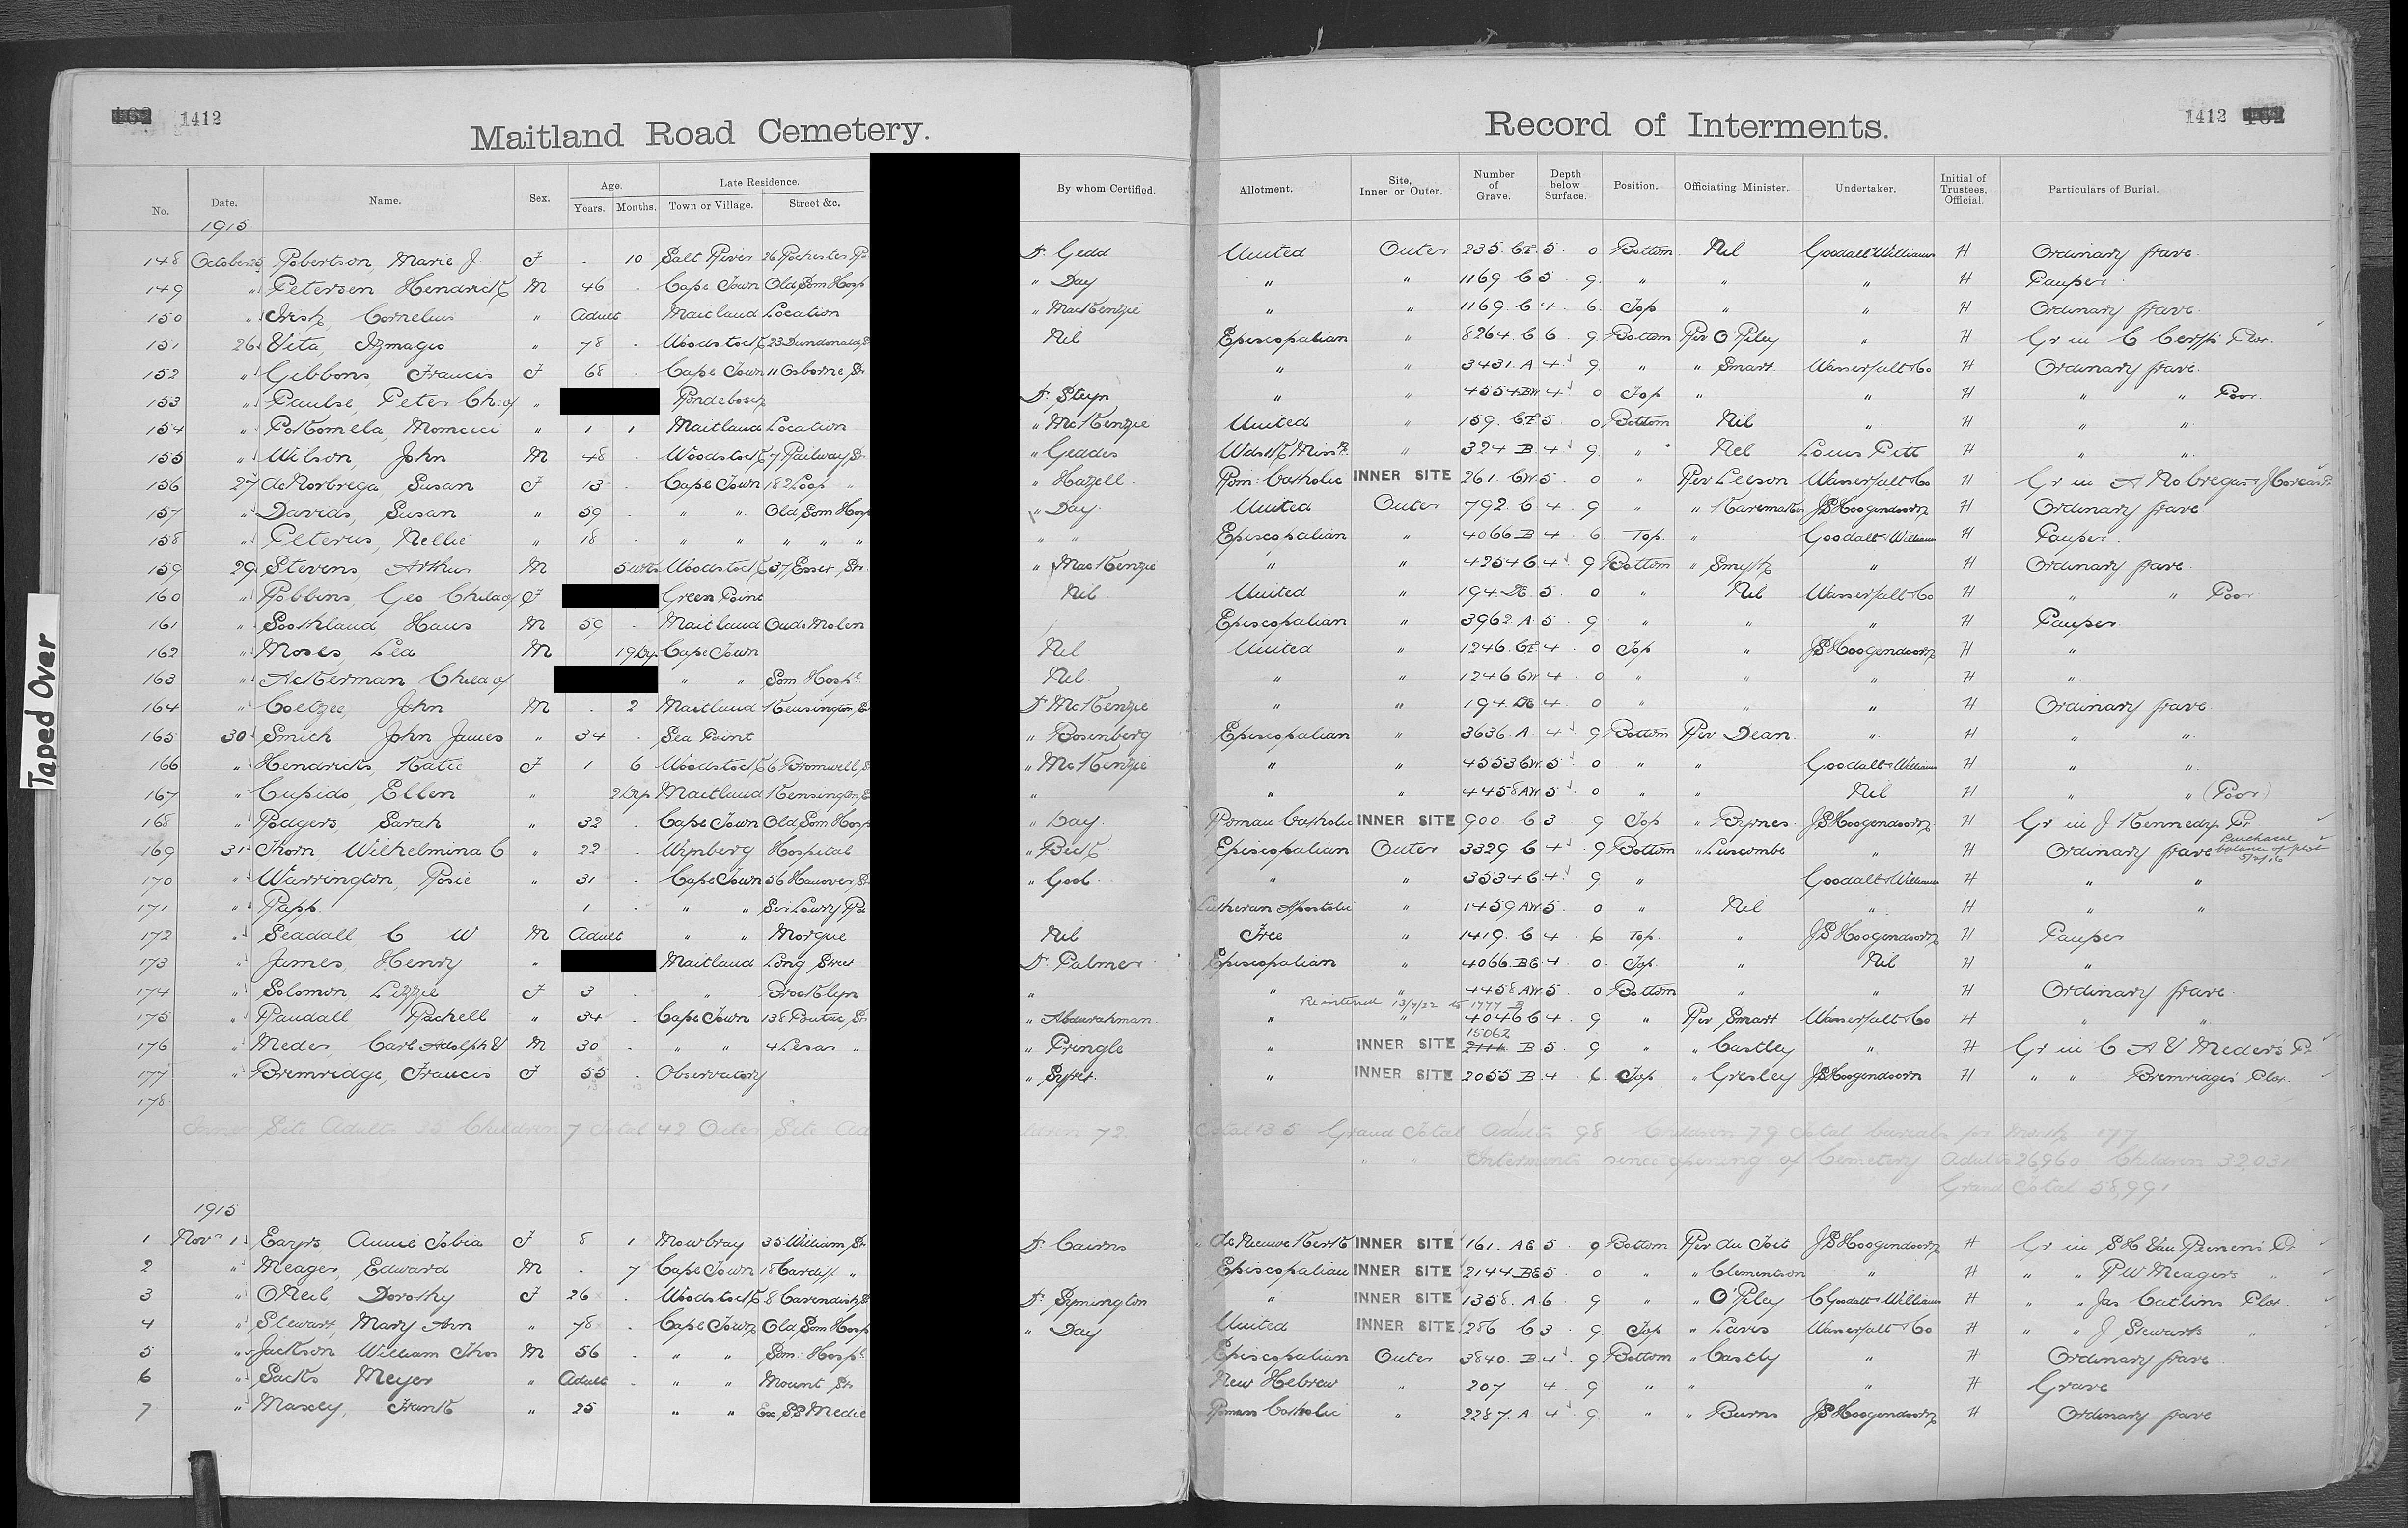 1412
1412
Maitland Road Cemetery.
Record of Interments.
No. Date. Name. Sex. Age. Years. Months. Late Residence. Town or Village. Street &c. By whom Certified. Allotment. Site, Inner or Outer. Number of Grave. Depth below Surface. Position. Officiating Minister. Undertaker. Initial of Trustees. Official. Particulars of Burial.
1915
148 October 25 Robertson, Marie J. F . 10 Salt River 26 Rochester Rd Dr Gedd United Outer 235. CE 5. 0 Bottom Nil Goodall & Williams H Ordinary Grave
149 " Petersen Hendrick M 46 . Cape Town Old Som Hosp " Day " " 1169 C 5. 9. " " " H Pauper
150 " Irish, Cornelius " Adult Maitland Location " MacKenzie " " 1169 C 4. 6. Top " " H Ordinary Grave
151 26 Vita, Izmagio " 78 . Woodstock 23 Dundonald St Nil Episcopalian " 8264 C 6 9 Bottom Rev O'Riley " H Gr in C Plot.
152 " Gibbons, Francis F 68 . Cape Town 11 Osborne St " " 3431. A 4 9. " " Smart Wanserfalt & Co H Ordinary Grave.
153 " Paulse, Peter Ch: of " Rondebosch Dr Steyn " " 4554 BW 4 0 Top " " H " " Poor.
154 " Momcici " 1 1 Maitland Location " McKenzie United " 159. CE 5. 0 Bottom Nil " H " "
155 " Wilson, John M 48 . Woodstock 7 Railway St " Geddes " 324 B. 4 9. " Nil Louis Pitt H " "
156 27 de Norbrega, Susan F 13 . Cape Town 182 Loop " " Hazell Rom: Catholic INNER SITE 261. CW 5. 0 " Rev Leeson Wanserfalt & Co H Gr in A Nobregas
157 " Davids, Susan " 59 . " " Old Som Hosp " Day United Outer 792. C 4. 9 " " JS Hoogendoorn H Ordinary Grave
158 " Peterus, Nellie " 18 . " " " " " " " Episcopalian " 4066 B 4. 6 Top. " Goodall & Williams H Pauper.
159 29 Stevens, Arthur M 5 wks Woodstock 37 Essex St. " MacKenzie " " 4254 C 4 9 Bottom " Smyth " H Ordinary Grave
160 " Robbins, Geo Child of F Green Point Nil United " 194. DE 5. 0 " Nil Wanserfalt & Co H " " Poor
161 " Hans M 59 . Maitland Oude Molen Episcopalian " 3962. A 5. 9. " " " H Pauper.
162 " Moses, Lea M 19 Dys Cape Town Nil United " 1246. CE 4. 0 Top " JS Hoogendoorn H "
163 " Ackerman Child of " " Som Hospl. Nil. " " 1246 CW 4. 0 " " " H "
164 " Coetzee, John M . 2 Maitland Kensington E Dr McKenzie " " 194. DE 4. 0 " " " H Ordinary Grave
165 30 Smith John James " 34 . Sea Point " Rosenberg Episcopalian " 3636. A 4 9 Bottom Rev Dean. " H " "
166 " Hendricks, Katie F 1 6 Woodstock 6 Bromwell St " McKenzie " " 4553 CW 5 0 " " Goodall & Williams H " "
167 " Cupido, Ellen " 2 Dys Maitland Kensington E " " " 4458 AW 5. 0 " " Nil H " " (Poor)
168 " Rodgers, Sarah " 32 . Cape Town Old Som Hosp " Day. Roman Catholic INNER SITE 900. C 3. 9 Top " Byrnes JS Hoogendoorn H Gr in J Kennedys Pt
169 31 Thorn, Wilhelmina C " 22 . Wynberg Hospital " Beck Episcopalian Outer 3329 C 4 9 Bottom " Luscombe " H Ordinary Grave Purchase balance of plot 5/2/16
170 " Warrington, Rosie " 31 . Cape Town 56 Hanover St " Gool " " 3534 C 4 9 " Goodall & Williams H " "
171 " Rapp. 1 . " " Sir Lowry Rd Lutheran Apostolic " 1459 AW 5. 0 " Nil " H " "
172 " Seadall, C W M Adult " " Morgue Nil Free " 1419. C 4. 6 Top. " JS Hoogendoorn H Pauper
173 " James, Henry " Maitland Long Street Dr Palmer Episcopalian " 4066. BE 4. 0. Top. " Nil H "
174 " Solomon, Lizzie F 3 . " Brooklyn " " " 4458 AW 5. 0 Bottom " " H Ordinary Grave
Reinterred 13/7/22 to 1777 B
175 " Randall Rachell " 34 . Cape Town 138 Pontac St " Abdurahman. " " 4046 C 4. 9 " Rev Smart Wanserfalt & Co H " "
15062
176 " Meder, Carl Adolph V M 30 . " " 4 Lesar " " Pringle " INNER SITE B 5. 9 " " Castley " H Gr in C A V Meders Pt
177 " Bremridge, Francis F 55 . Observatory " Syfret. " INNER SITE 2055 B. 4. 6. Top " Gresley JS Hoogendoorn H " " Bremridges Plot.
178.
Inner Site Adults 35 Children 7 Total 42 Outer Site Ad ldren 72. Total 135 Grand Total Adults 98 Children 79 Total burials for Month 177
" " Interments since opening of Cemetery Adults 26,960 Children 32,031
Grand Total 58,991
1915
1 Nov. 1 Annie Tobia F 8 1 Mowbray 35 William St Dr Cairns de Nieuwe Kerk INNER SITE 161. AE 5. 9 Bottom Rev du Toit JS Hoogendoorn H Gr in S H Van Reenens Pt
2 " Meager, Edward M . 7 Cape Town 18 Cardiff " Episcopalian INNER SITE 2144 BE 5 0 " " Clementson " H " " R W Meagers "
3 " O Neil Dorothy F 26 . Woodstock 8 Cavendish St Dr Symington " INNER SITE 1358. A 6. 9 " " O'Riley C Goodall & Williams H " " Jas Catlins Plot.
4 " Stewart, Mary Ann " 78 . Cape Town Old Som Hosp " Day United INNER SITE 286 C 3. 9. Top " Lavis Wanserfalt & Co H " " J Stewarts "
5 " Jackson William Thos M 56 . " " Som: Hospl. Episcopalian Outer 3840. B 4. 9 Bottom " Castley " H Ordinary Grave
6 " Sacks Meyer " Adult . " " Mount St. New Hebrew " 207 4. 9 " " " H Grave
7 " Maxey, Frank " 25 " " Ex. SS Medic Roman Catholic " 2287. A. 4 9. " " Burns JS Hoogendoorn H Ordinary Grave
Taped Over